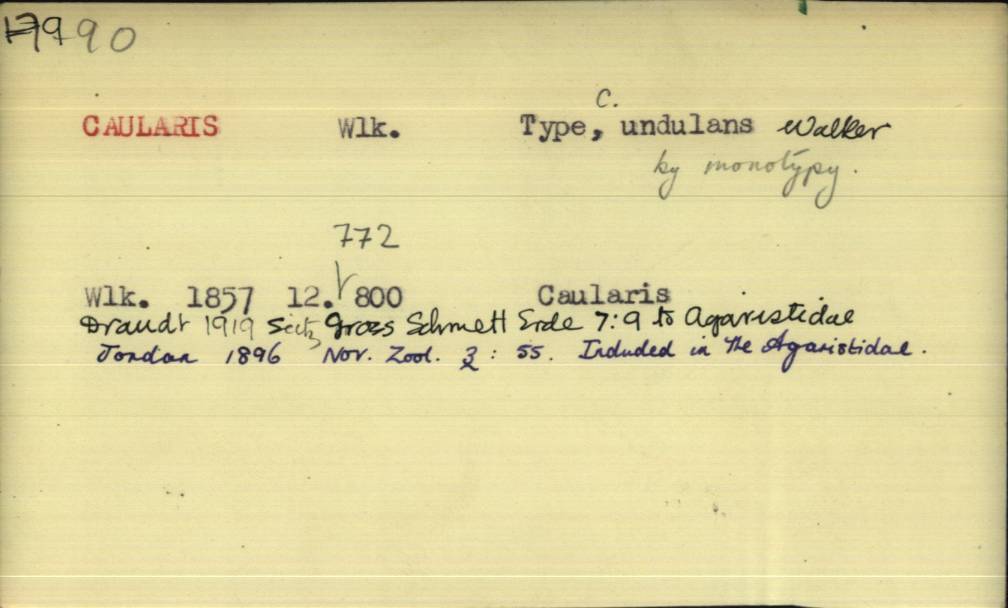 90
C.
CAULARIS Wlk. Type, undulans Walker
by monotypy.
772
Wlk. 1857 12. 800 Caularis
Draudt 1919 Seitz Gross Schmett Erde 7:9 to Agaristidae
Jordan 1896 Nov. Zool. 3 : 55. Included in the Agaristidae.